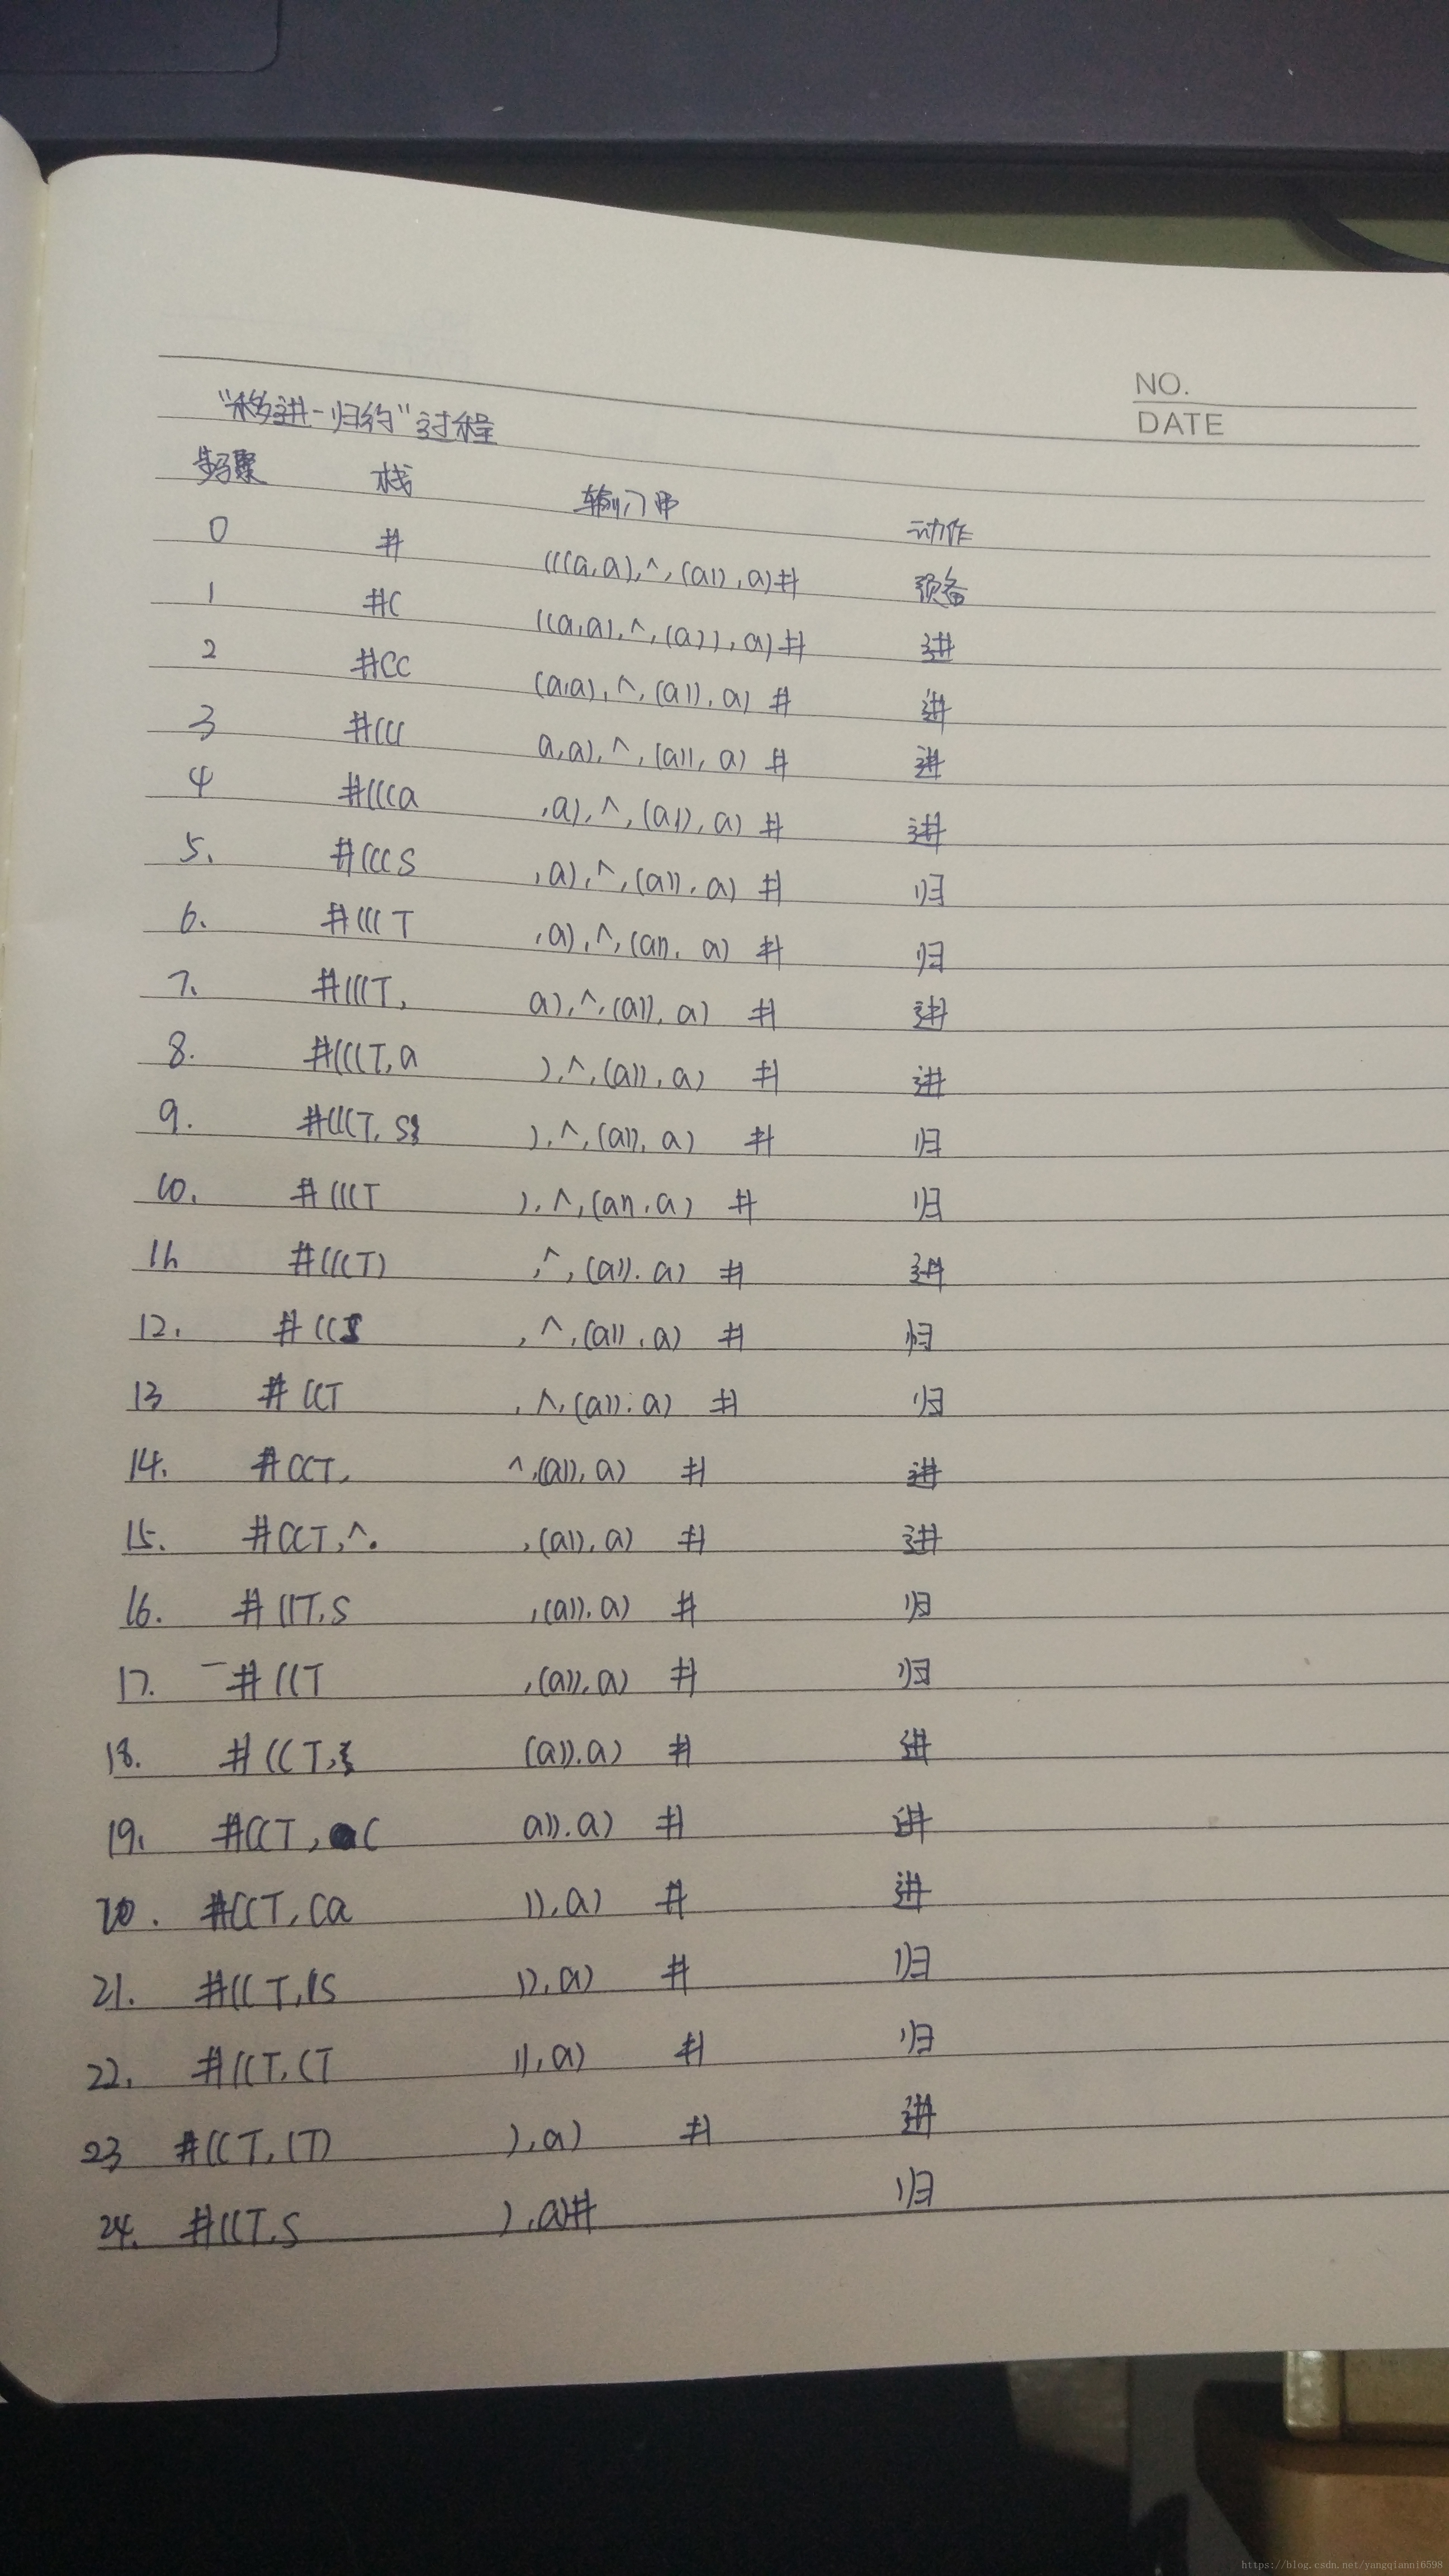 NO.
DATE
"移进-归约"过程
步骤 栈 输入串 动作
0 # (((a,a),^,(a)),a)# 预备
1 #( ((a,a),^,(a)),a)# 进
2 #(( (a,a),^,(a)),a) # 进
3 #((( a,a),^,(a)),a) # 进
4 #(((a ,a),^,(a)),a) # 进
5. #(((S ,a),^,(a)),a) # 归
6. #(((T ,a),^,(a)),a) # 归
7. #(((T, a),^,(a)),a) # 进
8. #(((T,a ),^,(a)),a) # 进
9. #(((T,S ),^,(a)),a) # 归
10. #(((T ),^,(a)),a) # 归
11. #(((T) ,^,(a)),a) # 进
12. #((S ,^,(a)),a) # 归
13 #((T ,^,(a)),a) # 归
14. #((T, ^,(a)),a) # 进
15. #((T,^. ,(a)),a) # 进
16. #((T,S ,(a)),a) # 归
17. #((T ,(a)),a) # 归
18. #((T, (a)),a) # 进
19. #((T,( a)),a) # 进
20. #((T,(a )),a) # 进
21. #((T,(S )),a) # 归
22. #((T,(T )),a) # 归
23 #((T,(T) ),a) # 进
24. #((T,S ),a)# 归
https://blog.csdn.net/yangqiann16598